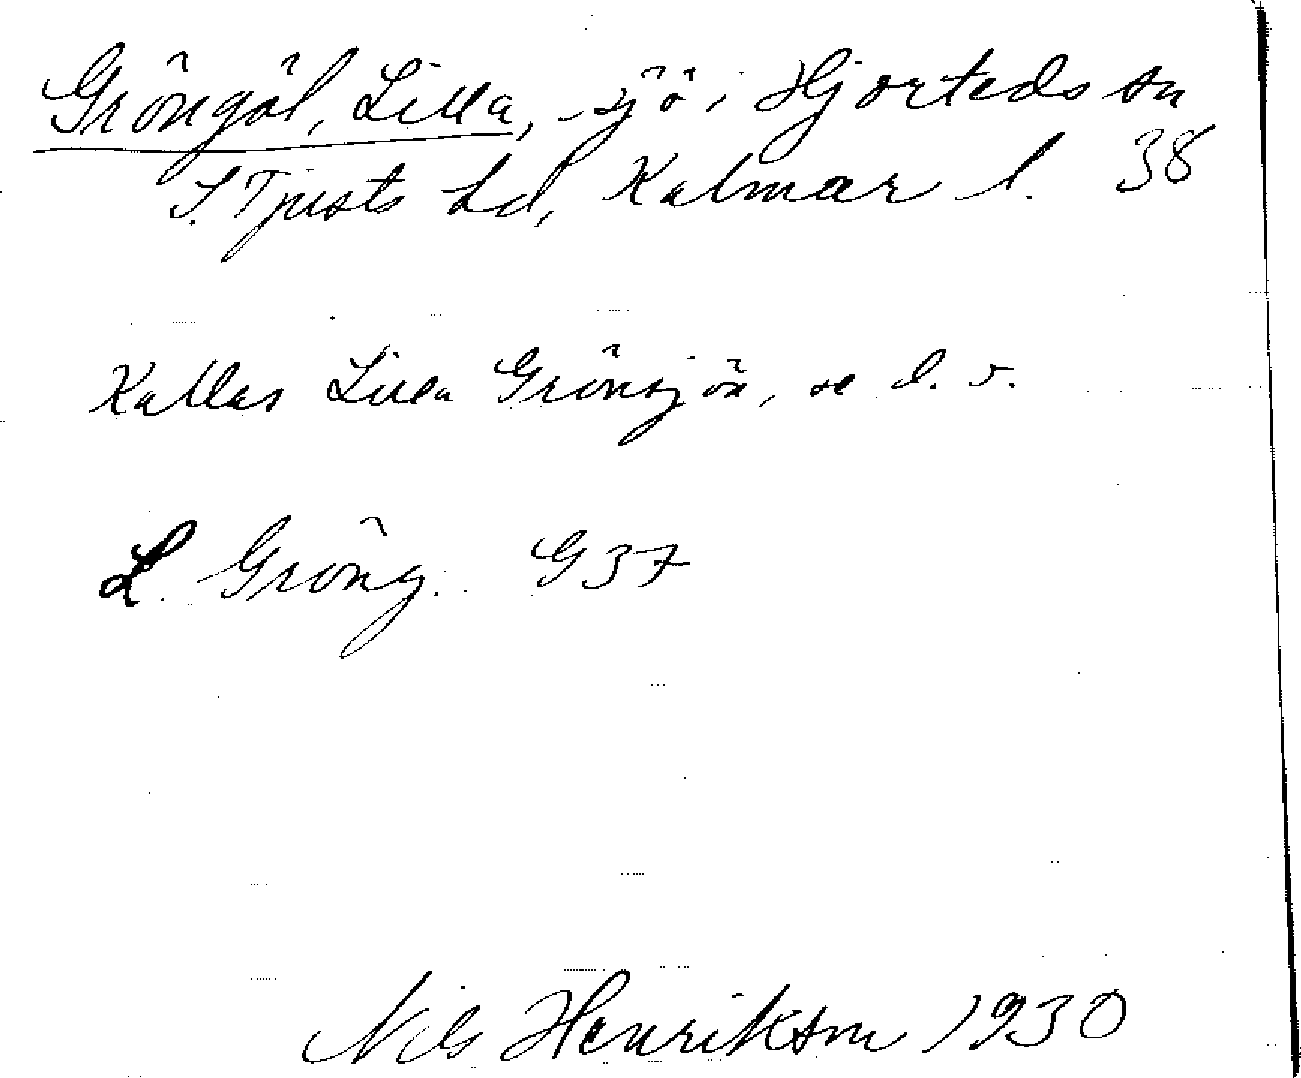 Gröngöl, Lilla, sjö i Hjorteds sn
S. Tjusts hd, Kalmar l. 38
Kallas Lilla Grönsjön, se d. o.
L. Gröng. G 37
Nils Henrikson 1930